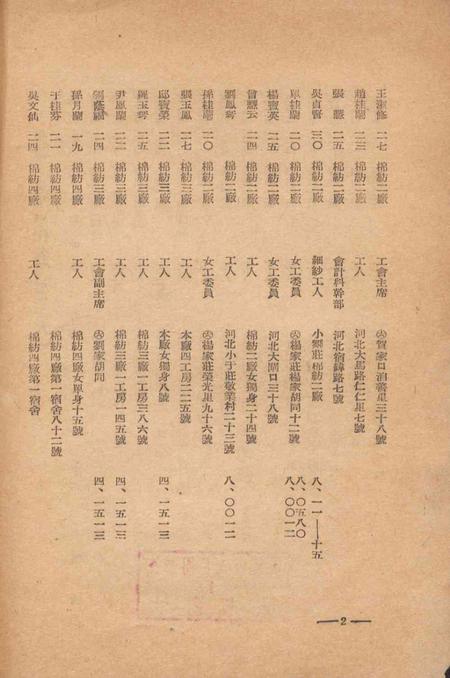 王淑修 二七 棉紡二廠 工會主席 ㊅賀家口消善里三十八號
趙桂蘭 二三 棉紡二廠 工人 河北大馬路仁仁里七號
張慧 二五 棉紡二廠 會計科幹部 河北宿緯路七號
吳貞賢 三〇 棉紡二廠 細紗工人 小劉莊棉紡二廠 八、一一——十五
單桂蘭 二〇 棉紡二廠 女工委員 ㊅楊家莊楊家胡同十二號 八、〇五八〇 八、〇〇一二
楊寶英 二五 棉紡二廠 女工委員 河北大閘口三十八號
曾慧云 二四 棉紡二廠 棉紡二廠女獨身二十四號
劉鳳琴 棉紡二廠 工人 河北小于莊敬業村二十三號 八、〇〇一二
孫桂蘭 二〇 棉紡二廠 女工委員 ㊅楊家莊榮光里九十六號
張玉鳳 二七 棉紡三廠 工人 本廠四工房二二五號
邱寶榮 二二 棉紡三廠 本廠女獨身八號 四、一五一三
羅玉琴 二五 棉紡三廠 工人 棉紡三廠一工房三八六號
尹鳳蘭 二二 棉紡三廠 工人 棉紡三廠一工房一四五號 四、一五一三
二四 棉紡三廠 工會副主席 ㊅劉家胡同 四、一五一三
孫月蘭 一九 棉紡四廠 工人 棉紡四廠女單身十五號
于桂芬 二一 棉紡四廠 棉紡四廠第一宿舍八十二號
吳文仙 二四 棉紡四廠 工人 棉紡四廠第一宿舍
—2—